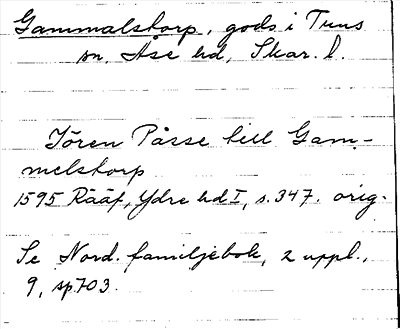 Gammalstorp, gods i Tuns
sn, Åse hd, Skar. l.
Jören Påsse till Gam-
melstorp
1595 Rääf, Ydre hd I, s. 347. orig.
Se Nord. familjebok, 2 uppl.,
9, sp 703.